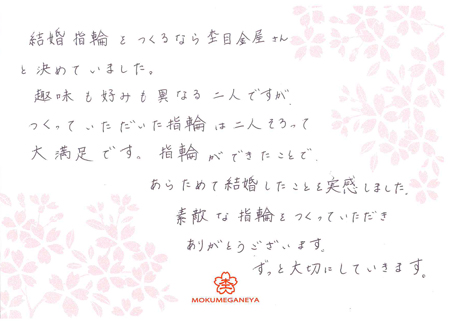 結婚指輪をつくるなら杢目金屋さん
と決めていました。
趣味も好みも異なる二人ですが、
つくっていただいた指輪は二人そろって
大満足です。指輪ができたことで、
あらためて結婚したことを実感しました。
素敵な指輪をつくっていただき
ありがとうございます。
ずっと大切にしていきます。
MOKUMEGANEYA